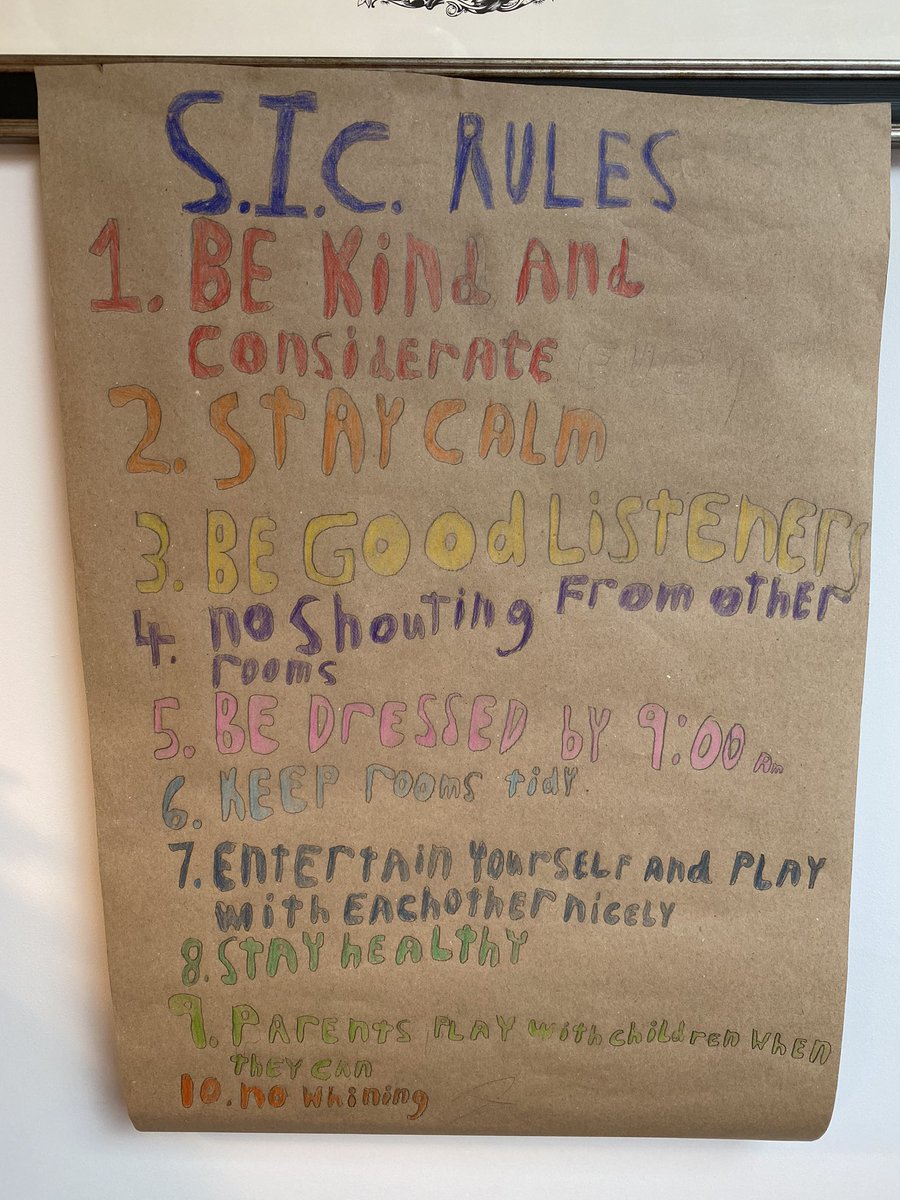 S.I.C. RULES
1. BE KinD AnD
ConsiDerATE
2. STAY CALm
3. BE GooD ListEnErs
4. no Shouting From other
rooms
5. BE DressED by 9:00 Am
6. KEEP rooms tidy
7. EnTErtAin YoursELF AnD PLAY
with EAchother nicELY
8. STAY hEALThY
9. PArEnTS PLAY with children When
they CAn
10. no whining